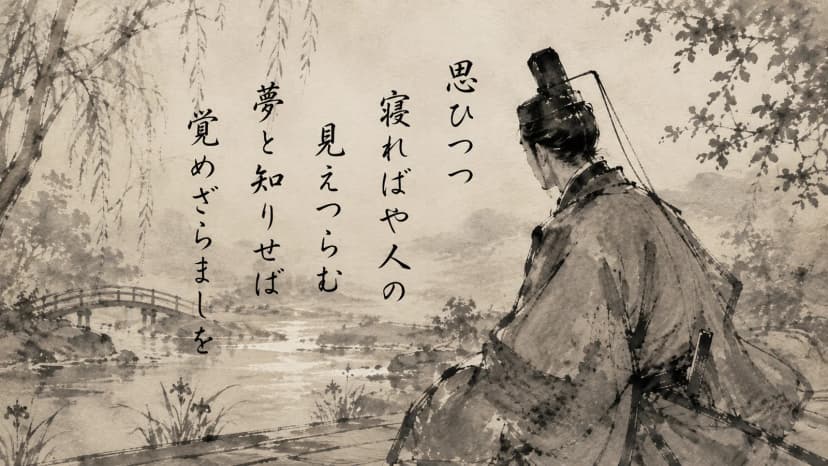 思ひつつ
寝ればや人の
見えつらむ
夢と知りせば
覚めざらましを